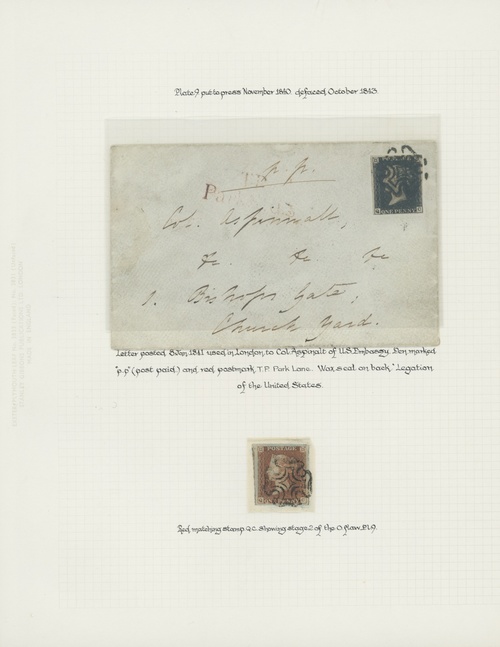 Plate 9 put to press November 1840 defaced October 1843
p.p.
P
Col. Aspinwall,
&c. &c &c
1. Bishops Gate,
Church Yard.
ONE PENNY
Letter posted 8 Jan. 1841 used in London, to Col. Aspinalt of U.S. Embassy. Pen marked
"p.p" (post paid) and red postmark, T.P. Park Lane. Wax seal on back "Legation
of the United States.
POSTAGE
Red matching stamp Q.C. showing stage 2 of the O flaw. Pl.9.